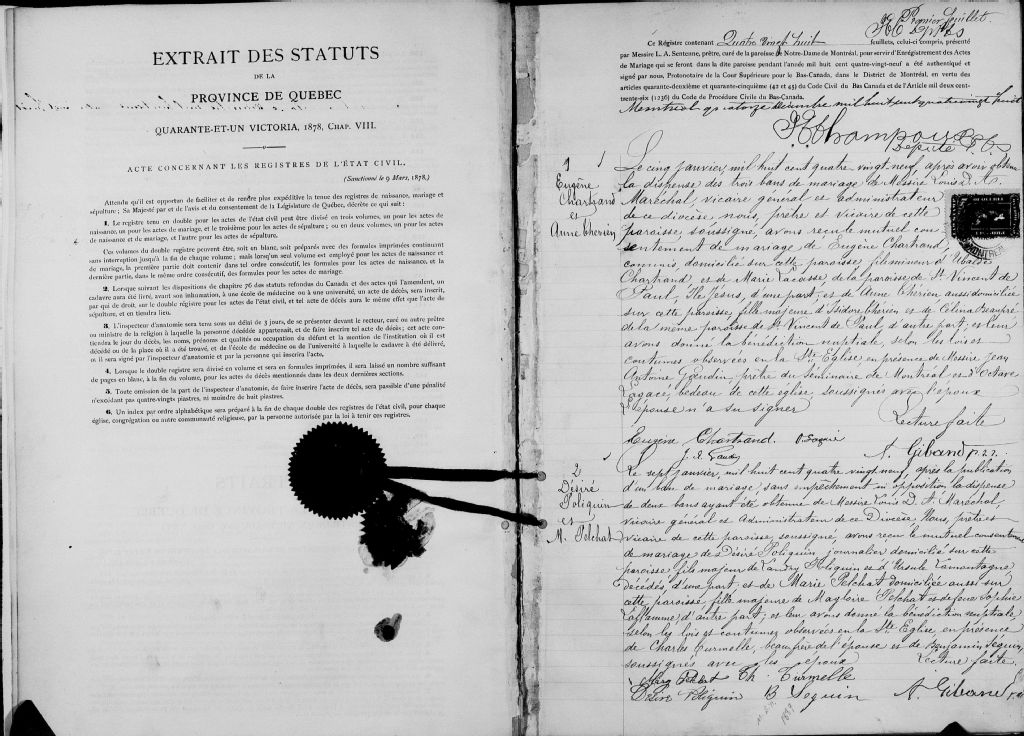 EXTRAIT DES STATUTS
DE LA
PROVINCE DE QUEBEC
QUARANTE-ET-UN VICTORIA, 1878, CHAP. VIII.
ACTE CONCERNANT LES REGISTRES DE L'ÉTAT CIVIL,
(Sanctionné le 9 Mars, 1878,)
Attendu qu'il est opportun de faciliter et de rendre plus expéditive la tenue des registres de naissance, mariage et
sépulture ; Sa Majesté par et de l'avis et du consentement de la Législature de Québec, décrète ce qui suit :
1. Le registre tenu en double pour les actes de l'état civil peut être divisé en trois volumes, un pour les actes de
naissance, un pour les actes de mariage, et le troisième pour les actes de sépulture ; ou en deux volumes, un pour les actes
de naissance et de mariage, et l'autre pour les actes de sépulture.
Ces volumes du double registre peuvent être, soit en blanc, soit préparés avec des formules imprimées continuant
sans interruption jusqu'à la fin de chaque volume ; mais lorsqu'un seul volume est employé pour les actes de naissance et
de mariage, la première partie doit contenir dans tel ordre consécutif, les formules pour les actes de naissance, et la
dernière partie, dans le même ordre consécutif, des formules pour les actes de mariage.
2. Lorsque suivant les dispositions du chapitre 76 des statuts refondus du Canada et des actes qui l'amendent, un
cadavre aura été livré, avant son inhumation, à une école de médecine ou à une université, un acte de décès, sera inscrit,
par qui de droit, sur le double régistre pour les actes de l'état civil, et tel acte de décès aura le même effet que l'acte de
sépulture, et en tiendra lieu.
3. L'inspecteur d'anatomie sera tenu sous un délai de 3 jours, de se présenter devant le recteur, curé ou autre prêtre
ou ministre de la religion à laquelle la personne décédée appartenait, et de faire inscrire tel acte de décès ; cet acte con-
tiendra le jour du décès, les noms, prénoms et qualités ou occupation du défunt et la mention de l'institution où il est
décédé ou de la place où il a été trouvé, et de l'école de médecine ou de l'université à laquelle le cadavre a été délivré,
et il sera signé par l'inspecteur d'anatomie et par la personne qui inscrira l'acte,
4. Lorsque le double registre sera divisé en volume et sera en formules imprimées, il sera laissé un nombre suffisant
de pages en blanc, à la fin du volume, pour les actes de décès mentionnés dans les deux dernières sections.
5. Toute omission de la part de l'inspecteur d'anatomie, de faire inscrire l'acte de décès, sera passible d'une pénalité
n'excédant pas quatre-vingts piastres, ni moindre de huit piastres.
6. Un index par ordre alphabétique sera préparé à la fin de chaque double des registres de l'état civil, pour chaque
église, congrégation ou autre communauté religieuse, par la personne autorisée par la loi à tenir ces registres.
Premier feuillet
Ce Régistre contenant Quatre vingt huit feuillets, celui-ci compris, présenté
par Messire L. A. Sentenne, prêtre, curé de la paroisse de Notre-Dame de Montréal, pour servir d'Enrégistrement des Actes
de Mariage qui se feront dans la dite paroisse pendant l'année mil huit cent quatre-vingt-neuf a été authentiqué et
signé par nous, Protonotaire de la Cour Supérieure pour le Bas-Canada, dans le District de Montréal, en vertu des
articles quarante-deuxième et quarante-cinquième (42 et 45) du Code Civil du Bas-Canada et de l'Article mil deux cent-
trente-six (1236) du Code de Procédure Civile du Bas-Canada.
Montréal quatorze décembre mil huit cent quatre vingt huit
Champoux
Député P.C.S
1
Eugène
Chartrand
et
Anne Thérien
Le cinq janvier, mil huit cent quatre vingt neuf, après avoir obtenu
la dispense des trois bans de mariage de Messire Louis D. A.
Maréchal, vicaire général et administrateur
de ce diocèse nous, prêtre et vicaire de cette
paroisse, soussigné, avons reçu le mutuel con
sentement de mariage de Eugène Chartrand,
commis, domicilié sur cette paroisse, fils mineur d'
Chartrand et de Marie Lacasse de la paroisse de St Vincent de
Paul, Ile Jésus, d'une part; et de Anne Thérien aussi domiciliée
sur cette paroisse, fille majeure d'Isidore Thérien et de Célina Beaupré
de la même paroisse de St Vincent de Paul d'autre part, et leur
avons donné la bénédiction nuptiale, selon les lois et
coutumes observées en la Ste Église en présence de Messire Jean
Antoine Gaudin, prêtre du séminaire de Montréal et d'Octave
Lagacé, bedeau de cette église, soussignés avec l'époux
L'épouse n'a su signer
Lecture faite
Eugène Chartrand.
A. Giband
2
Désiré
Poliquin
et
M. Pelchat
Le sept janvier, mil huit cent quatre vingt neuf, après la publication
d'un banc de mariage, sans empêchement ni opposition la dispense
de deux bans ayant été obtenue de Messire Louis D. A. Maréchal,
vicaire général et Administrateur de ce Diocèse Nous, prêtre et
vicaire de cette paroisse, soussigné, avons reçu le mutuel consentement
de mariage de Désiré Poliquin journalier domicilié sur cette
paroisse, fils majeur de Landry Poliquin et d'Ursule Lamontagne
Décédés, d'une part et de Marie Pelchat domiciliée aussi sur
cette paroisse, fille majeure de Magloire Pelchat et de feue Sophie
Laflamme, d'autre part, et leur avons donné la bénédiction nuptiale,
selon les lois et coutumes observées en la Ste Église, en présence
de Charles Turmelle, beau frère de l'épouse et de Benjamin Séguin,
soussignés avec les époux
Lecture faite.
Ch. Turmelle
Désiré Poliquin B Seguin A. Giband